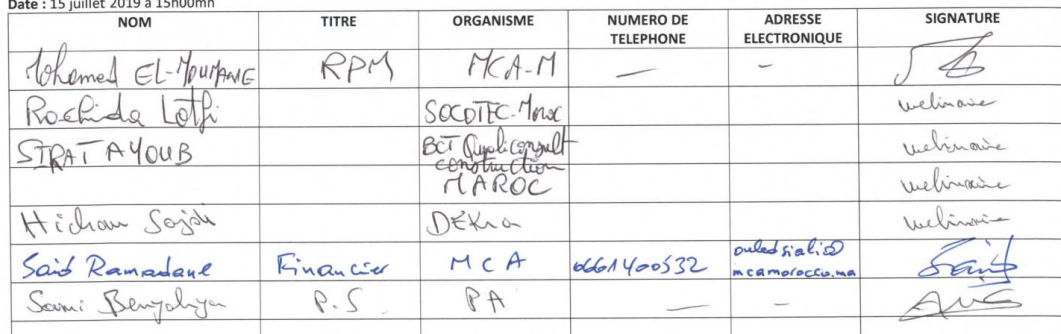 Date : 15 juillet 2019 à 15h00mn
NOM TITRE ORGANISME NUMERO DE TELEPHONE ADRESSE ELECTRONIQUE SIGNATURE
Mohamed EL-MOUMANE RPM MCA-M — —
Rachida Lotfi SOCOTEC-Maroc webinaire
STRAT AYOUB BCT Qualiconsult construction webinaire
MAROC webinaire
Hicham Sajdi DEKra webinaire
Said Ramadane Financier MCA 0661400532 mcamorocco.ma Said
Sami Benyahya P.S PA — —